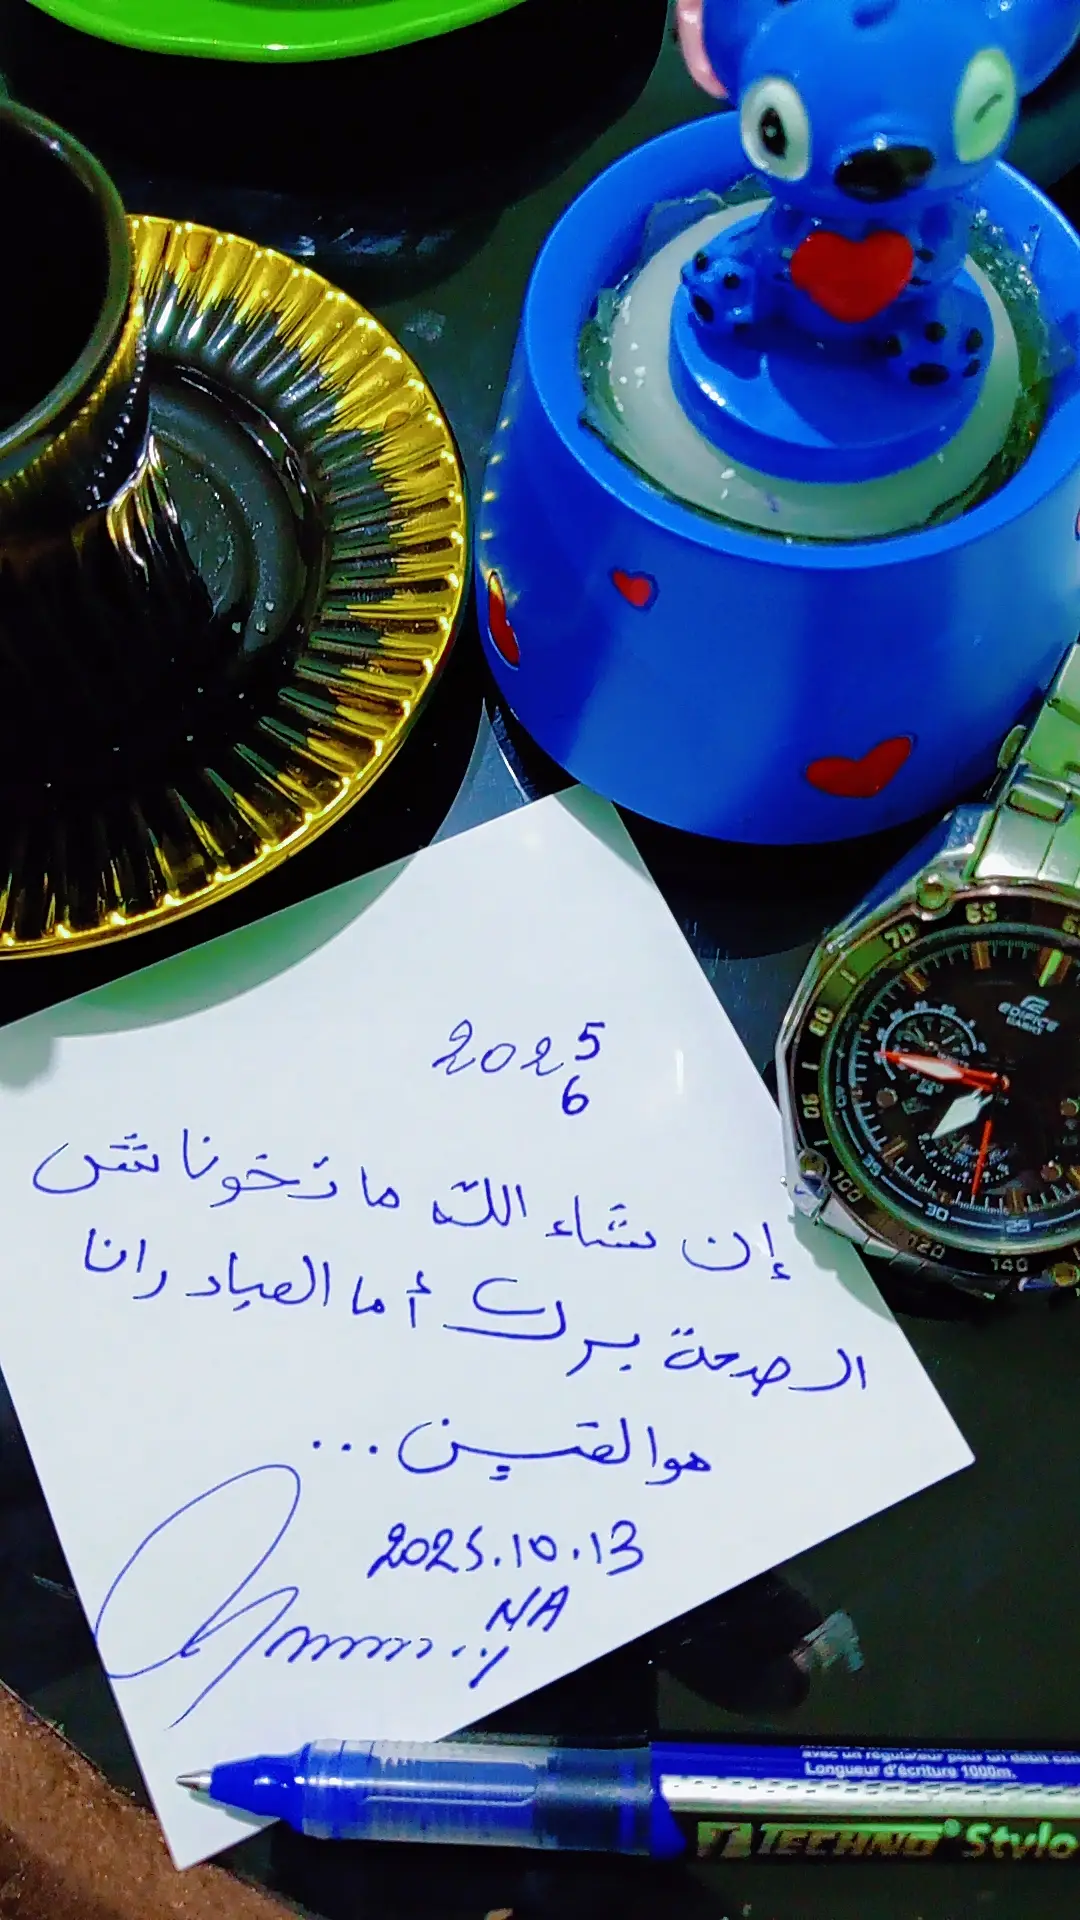 2025
6
إن شاء الله ما تخوناش
الصحة برك أما العباد رانا
هوالفين ...
2025.10.13
NA
EDIFICE
CASIO
65
70
80
90
100
120
140
35
30
25
avec un régulateur pour un débit con
Longueur d'écriture 1000m.
TECHNO Stylo